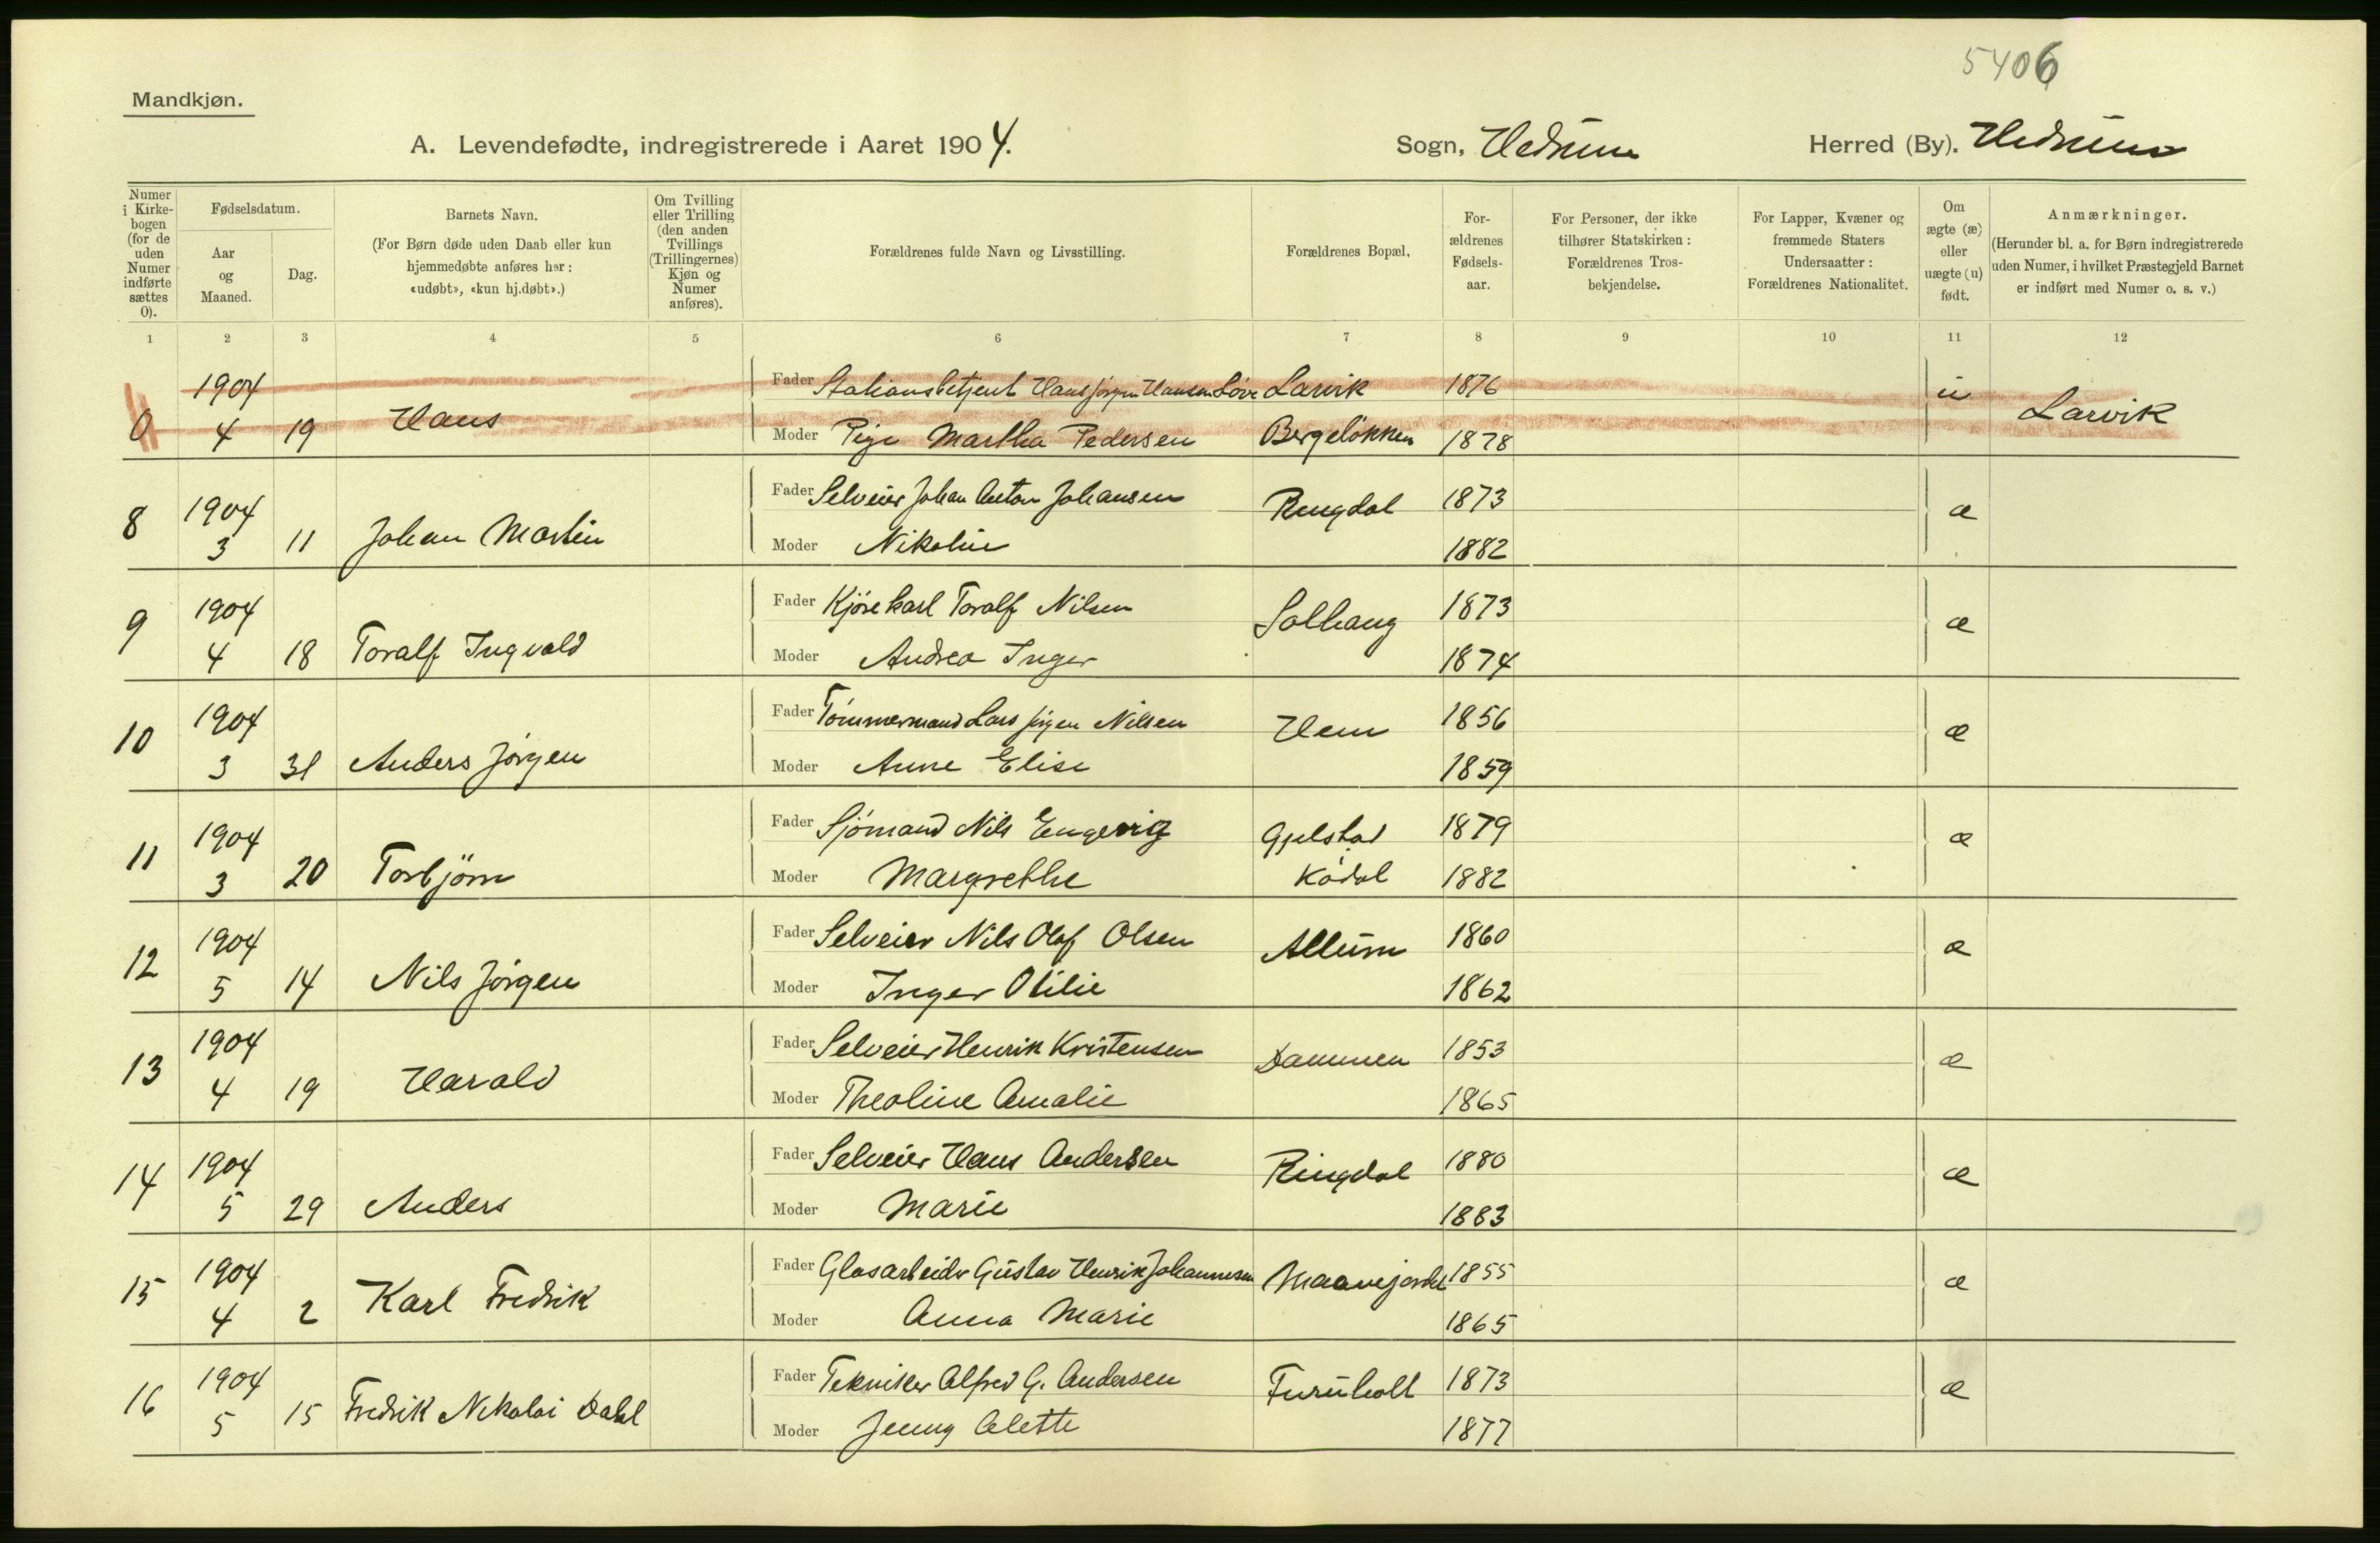 5406
Mandkjøn.
A. Levendefødte, indregistrerede i Aaret 1904.
Sogn, Hedrum
Herred (By). Hedrum
Numer i Kirkebogen (for de uden Numer indførte sættes 0).
Fødselsdatum.
Aar og Maaned.
Dag.
Barnets Navn.
(For Børn døde uden Daab eller kun hjemmedøbte anføres her: «udøbt», «kun hj.døbt».)
Om Tvilling eller Trilling (den anden Tvillings (Trillingernes) Kjøn og Numer anføres).
Forældrenes fulde Navn og Livsstilling.
Forældrenes Bopæl,
Forældrenes Fødselsaar.
For Personer, der ikke tilhører Statskirken: Forældrenes Trosbekjendelse.
For Lapper, Kvæner og fremmede Staters Undersaatter: Forældrenes Nationalitet.
Om ægte (æ) eller uægte (u) født.
Anmærkninger.
(Herunder bl. a. for Børn indregistrerede uden Numer, i hvilket Præstegjeld Barnet er indført med Numer o. s. v.)
1 2 3 4 5 6 7 8 9 10 11 12
1904 Fader Stationsbetjent Hans Jörgen Hansen Löve Larvik 1876 u
0 4 19 Hans Moder Pige Martha Pedersen Bergeløkken 1878 Larvik
8 1904 Fader Selveier Johan Anton Johansen Ringdal 1873 æ
3 11 Johan Martin Moder Nikoline 1882
9 1904 Fader Kjörekarl Toralf Nilsen Solhaug 1873 æ
4 18 Toralf Ingvald Moder Andrea Inger 1874
10 1904 Fader Tömmermand Lars Jörgen Nilsen Hem 1856 æ
3 31 Anders Jörgen Moder Anne Elise 1859
11 1904 Fader Sjömand Nils Engevig Gjelstad 1879 æ
3 20 Torbjörn Moder Margrethe Kodal 1882
12 1904 Fader Selveier Nils Olaf Olsen Allum 1860 æ
5 14 Nils Jörgen Moder Inger Otilie 1862
13 1904 Fader Selveier Henrik Kristensen Dammen 1853 æ
4 19 Harald Moder Theoline Amalie 1865
14 1904 Fader Selveier Hans Andersen Ringdal 1880 æ
5 29 Anders Moder Marie 1883
15 1904 Fader Glasarbeider Gustav Henrik Johannesen 1855 æ
4 2 Karl Fredrik Moder Anna Marie 1865
16 1904 Fader Tekniker Alfred G. Andersen Furuholt 1873 æ
5 15 Fredrik Nikolai Dahl Moder Jenny Alette 1877